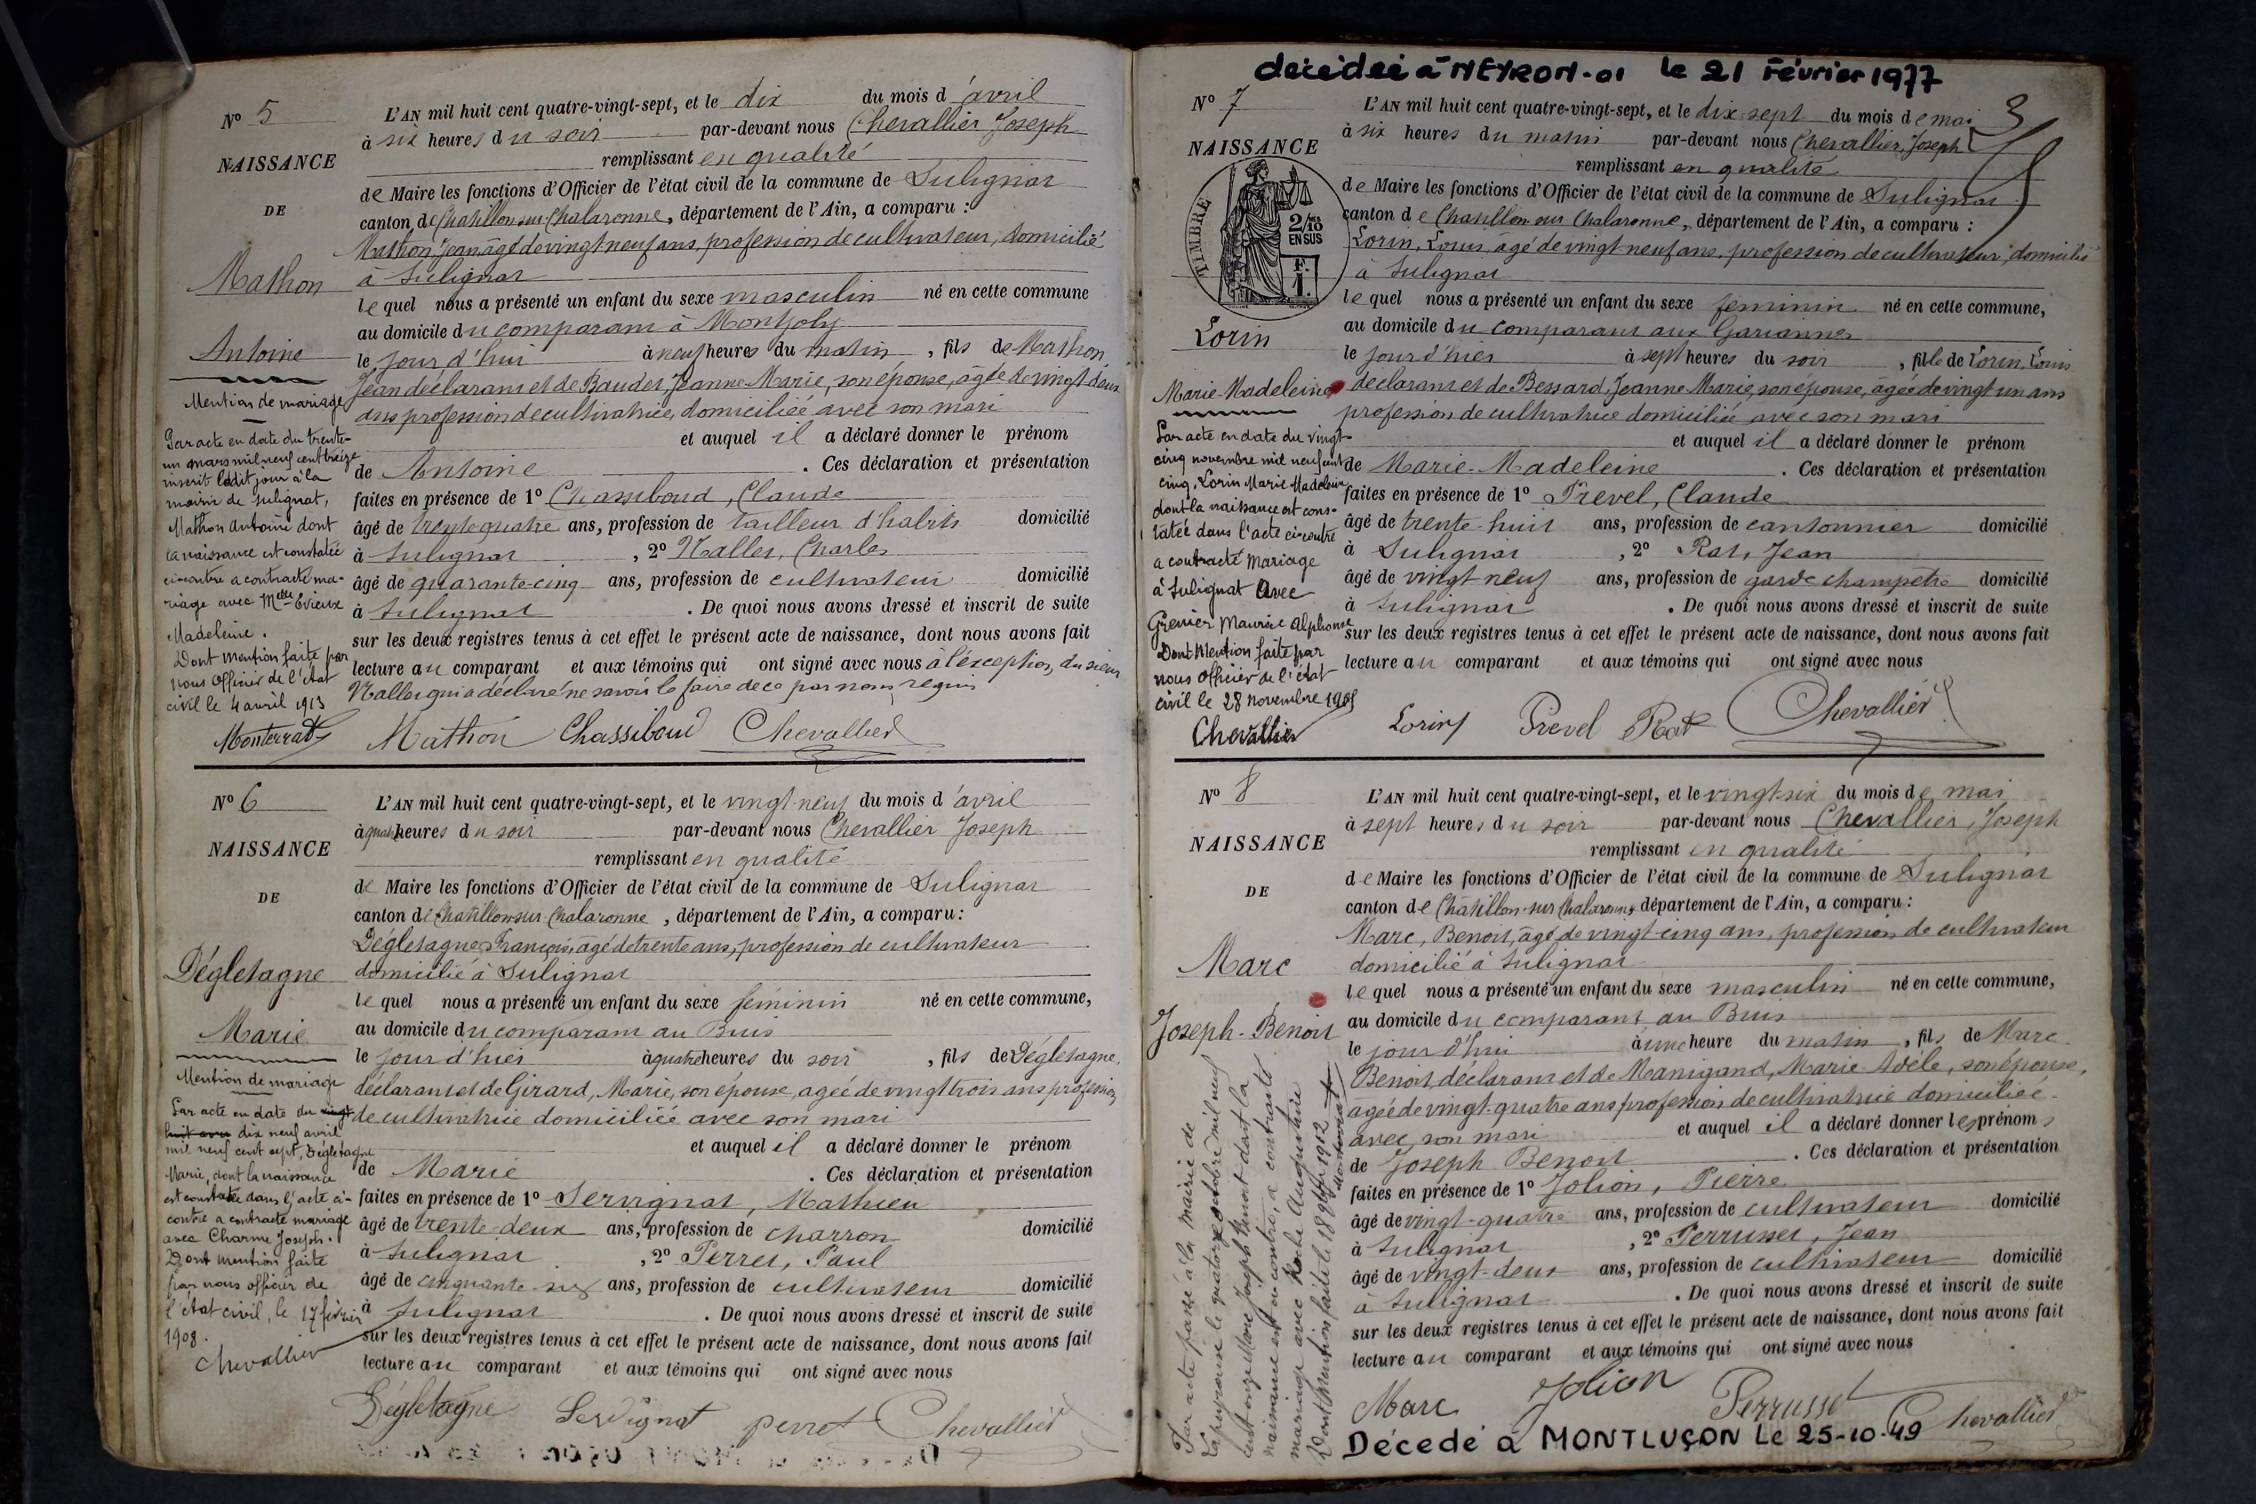 N° 5
NAISSANCE
DE
Mathon
Antoine
Mention de mariage
Par acte en date du trente-
un mars mil neuf cent treize
inscrit ledit jour à la
mairie de Sulignat,
Mathon Antoine dont
la naissance est constatée
ci-contre a contracté ma-
riage avec Melle Evieux
Madeleine.
Dont mention faite par
nous Officier de l'état
civil le 4 avril 1913
Monterrat
L'AN mil huit cent quatre-vingt-sept, et le dix du mois d'avril
à six heures du soir par-devant nous Chevallier Joseph
remplissant en qualité
de Maire les fonctions d'Officier de l'état civil de la commune de Sulignat
canton de Chatillon-sur-Chalaronne, département de l'Ain, a comparu :
Mathon Jean, âgé de vingt-neuf ans, profession de cultivateur, domicilié
à Sulignat
lequel nous a présenté un enfant du sexe masculin né en cette commune
au domicile du comparant à Montjoly
le jour d'hui à neuf heures du matin, fils de Mathon,
Jean déclarant et de Baudet Jeanne-Marie, son épouse, âgée de vingt-deux
ans profession de cultivatrice, domiciliée avec son mari
et auquel il a déclaré donner le prénom
de Antoine. Ces déclaration et présentation
faites en présence de 1° Chassiboud, Claude
âgé de trente quatre ans, profession de tailleur d'habits domicilié
à Sulignat, 2° Nallet, Charles
âgé de quarante-cinq ans, profession de cultivateur domicilié
à Sulignat. De quoi nous avons dressé et inscrit de suite
sur les deux registres tenus à cet effet le présent acte de naissance, dont nous avons fait
lecture au comparant et aux témoins qui ont signé avec nous à l'exception du sieur
Nallet qui a déclaré ne savoir le faire de ce par nous requis
Mathon Chassiboud Chevallier
N° 6
NAISSANCE
DE
Dégletagne
Marie
Mention de mariage
Par acte en date du vingt
huit avril dix neuf avril
mil neuf cent sept, Dégletagne
Marie, dont la naissance
est constatée dans l'acte ci-
contre a contracté mariage
avec Charme Joseph.
Dont mention faite
par nous officier de
l'état civil, le 17 février
1908.
Chevallier
L'AN mil huit cent quatre-vingt-sept, et le vingt-neuf du mois d'avril
à quatre heures du soir par-devant nous Chevallier Joseph
remplissant en qualité
de Maire les fonctions d'Officier de l'état civil de la commune de Sulignat
canton de Chatillon-sur-Chalaronne, département de l'Ain, a comparu :
Dégletagne François, âgé de trente ans, profession de cultivateur
domicilié à Sulignat
lequel nous a présenté un enfant du sexe féminin né en cette commune,
au domicile du comparant au Buis
le jour d'hier à quatre heures du soir, fils de Dégletagne,
déclarant et de Girard, Marie, son épouse, agée de vingt trois ans profession
de cultivatrice domiciliée avec son mari
et auquel il a déclaré donner le prénom
de Marie. Ces déclaration et présentation
faites en présence de 1° Servignat, Mathieu
âgé de trente-deux ans, profession de charron domicilié
à Sulignat, 2° Perret, Paul
âgé de cinquante-six ans, profession de cultivateur domicilié
à Sulignat. De quoi nous avons dressé et inscrit de suite
sur les deux registres tenus à cet effet le présent acte de naissance, dont nous avons fait
lecture au comparant et aux témoins qui ont signé avec nous
Dégletagne Servignat perret Chevallier
décédée à NEYRON-01 le 21 Février 1977
3
N° 7
NAISSANCE
TIMBRE
2/10
EN SUS
F.
1.
Lorin
Marie-Madeleine
Par acte en date du vingt-
cinq novembre mil neuf cent
cinq, Lorin Marie Madeleine
dont la naissance est cons-
tatée dans l'acte ci-contre
a contracté Mariage
à Sulignat avec
Grenier Maurice Alphonse
Dont Mention faite par
nous officier de l'état
civil le 28 novembre 1905
Chevallier
L'AN mil huit cent quatre-vingt-sept, et le dix-sept du mois de mai
à six heures du matin par-devant nous Chevallier, Joseph
remplissant en qualité
de Maire les fonctions d'Officier de l'état civil de la commune de Sulignat
canton de Chatillon-sur-Chalaronne, département de l'Ain, a comparu :
Lorin, Louis, âgé de vingt-neuf ans, profession de cultivateur, domicilié
à Sulignat
lequel nous a présenté un enfant du sexe féminin né en cette commune,
au domicile du comparant aux Gariannes
le jour d'hier à sept heures du soir, fille de Lorin, Louis
déclarant et de Bessard, Jeanne-Marie, son épouse, âgée de vingt-un ans
profession de cultivatrice domiciliée avec son mari
et auquel il a déclaré donner le prénom
de Marie-Madeleine. Ces déclaration et présentation
faites en présence de 1° Prevel, Claude
âgé de trente-huit ans, profession de cantonnier domicilié
à Sulignat, 2° Rat, Jean
âgé de vingt-neuf ans, profession de garde champêtre domicilié
à Sulignat. De quoi nous avons dressé et inscrit de suite
sur les deux registres tenus à cet effet le présent acte de naissance, dont nous avons fait
lecture au comparant et aux témoins qui ont signé avec nous
Lorin Prevel Rat Chevallier
N° 8
NAISSANCE
DE
Marc
Joseph-Benoit
Par acte passé à la mairie de
Lapeyrouse le quatorze octobre mil neuf
cent onze Marc Joseph Benoit dont la
naissance est ci-contre, a contracté
mariage avec Roche Augustine
Dont mention faite le 18 1912
Monterrat
L'AN mil huit cent quatre-vingt-sept, et le vingt-six du mois de mai
à sept heures du soir par-devant nous Chevallier, Joseph
remplissant en qualité
de Maire les fonctions d'Officier de l'état civil de la commune de Sulignat
canton de Châtillon-sur-Chalaronne, département de l'Ain, a comparu :
Marc, Benoit, âgé de vingt-cinq ans, profession de cultivateur
domicilié à Sulignat
lequel nous a présenté un enfant du sexe masculin né en cette commune,
au domicile du comparant au Buis
le jour d'hui à une heure du matin, fils de Marc
Benoit, déclarant et de Manigand, Marie-Adèle, son épouse,
agée de vingt-quatre ans profession de cultivatrice domiciliée
avec son mari et auquel il a déclaré donner les prénoms
de Joseph Benoit. Ces déclaration et présentation
faites en présence de 1° Jolion, Pierre
âgé de vingt-quatre ans, profession de cultivateur domicilié
à Sulignat, 2° Perrusset, Jean
âgé de vingt-deux ans, profession de cultivateur domicilié
à Sulignat. De quoi nous avons dressé et inscrit de suite
sur les deux registres tenus à cet effet le présent acte de naissance, dont nous avons fait
lecture au comparant et aux témoins qui ont signé avec nous
Marc Jolion Perrusset Chevallier
Décédé à MONTLUÇON Le 25-10-49